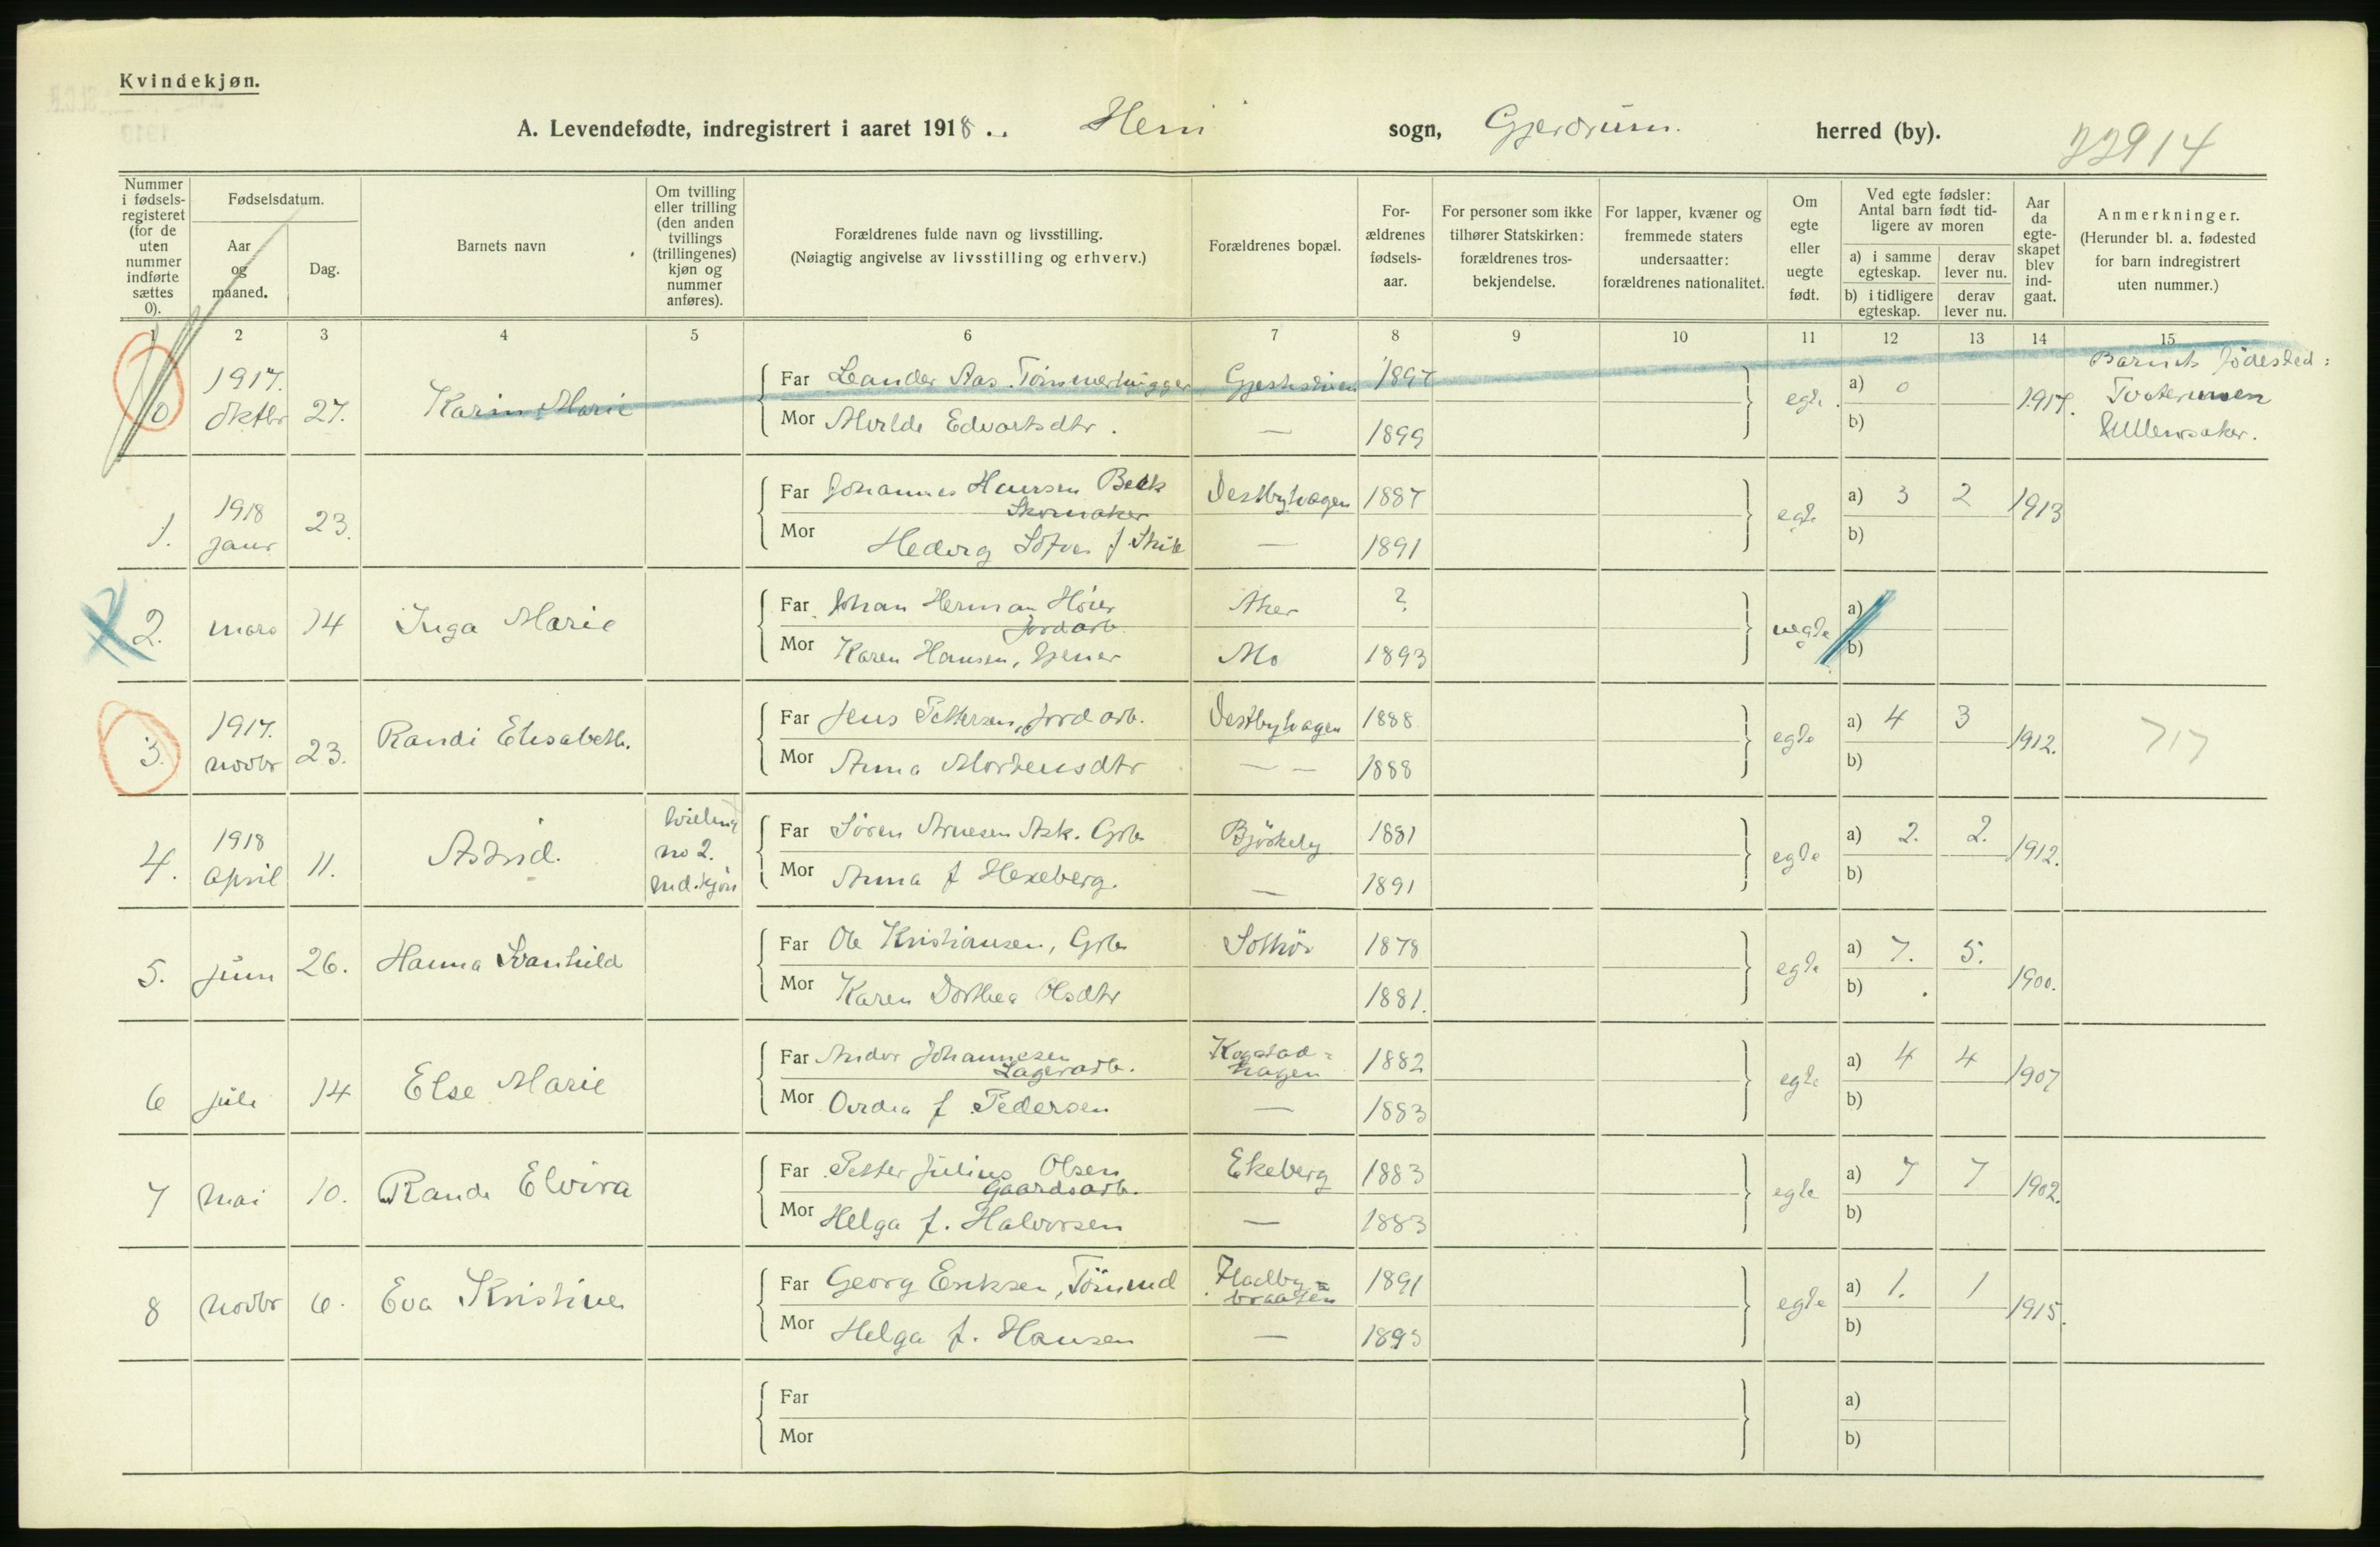 Kvindekjøn.
A. Levendefødte, indregistrert i aaret 1918. Heni sogn, Gjerdrum. herred (by).
22914
Nummer i fødselsregisteret (for de uten nummer indførte sættes 0).
Fødselsdatum.
Aar og maaned.
Dag.
Barnets navn
Om tvilling eller trilling (den anden tvillings (trillingenes) kjøn og nummer anføres).
Forældrenes fulde navn og livsstilling.
(Nøiagtig angivelse av livsstilling og erhverv.)
Forældrenes bopæl.
Forældrenes fødselsaar.
For personer som ikke tilhører Statskirken: forældrenes trosbekjendelse.
For lapper, kvæner og fremmede staters undersaatter: forældrenes nationalitet.
Om egte eller uegte født.
Ved egte fødsler: Antal barn født tidligere av moren
a) i samme egteskap.
derav lever nu.
b) i tidligere egteskap.
derav lever nu.
Aar da egteskapet blev indgaat.
Anmerkninger.
(Herunder bl. a. fødested for barn indregistrert uten nummer.)
1 2 3 4 5 6 7 8 9 10 11 12 13 14 15
0 1917. Oktbr 27. Karin Marie Far Leander Aas. Tømmerhugger 1897 egte. a) 0 1917. Barnets födested:
Mor Edvartsdtr. — 1899 b) Ullensaker.
1. 1918 Januar 23. Far Johannes Hansen Bekk Skomaker Vestbyhagen 1887 egte a) 3 2 1913
Mor — 1891 b)
2. mars 14 Inga Marie Far Johan Herman Höier Jordarb. Aker ? uegte a)
Mor Karen Hansen, Mo 1893 b)
3. 1917. novbr 23. Randi Elisabeth. Far Jens Pettersen, Jordarb. Vestbyhagen 1888 egte a) 4 3 1912. 717
Mor Anna Mortensdtr — — 1888 b)
4. 1918 April 11. Astrid. tvilling no 2. md.kjön Far Sören Arnesen Ask. Grbr Björkeby 1881 egte a) 2. 2. 1912.
Mor Anna f Hexeberg. — 1891 b)
5. Juni 26. Hanna Svanhild Far Ole Kristiansen, Grbr 1878 egte a) 7. 5. 1900.
Mor Karen Dorthea Olsdtr 1881. b)
6 juli 14 Else Marie Far Andor Johannesen Lagerarb. Kogstad=hagen 1882 egte a) 4 4 1907
Mor f Pedersen — 1883 b)
7 Mai 10. Randi Elvira Far Petter Julius Olsen Gaardsarb. Ekeberg 1883 egte a) 7 7 1902.
Mor Helga f. Halvorsen — 1883 b)
8 Novbr 6. Eva Kristine Far Georg Eriksen, Fladby=braaten 1891 egte a) 1. 1 1915.
Mor Helga f. Hansen — 1893 b)
Far a)
Mor b)